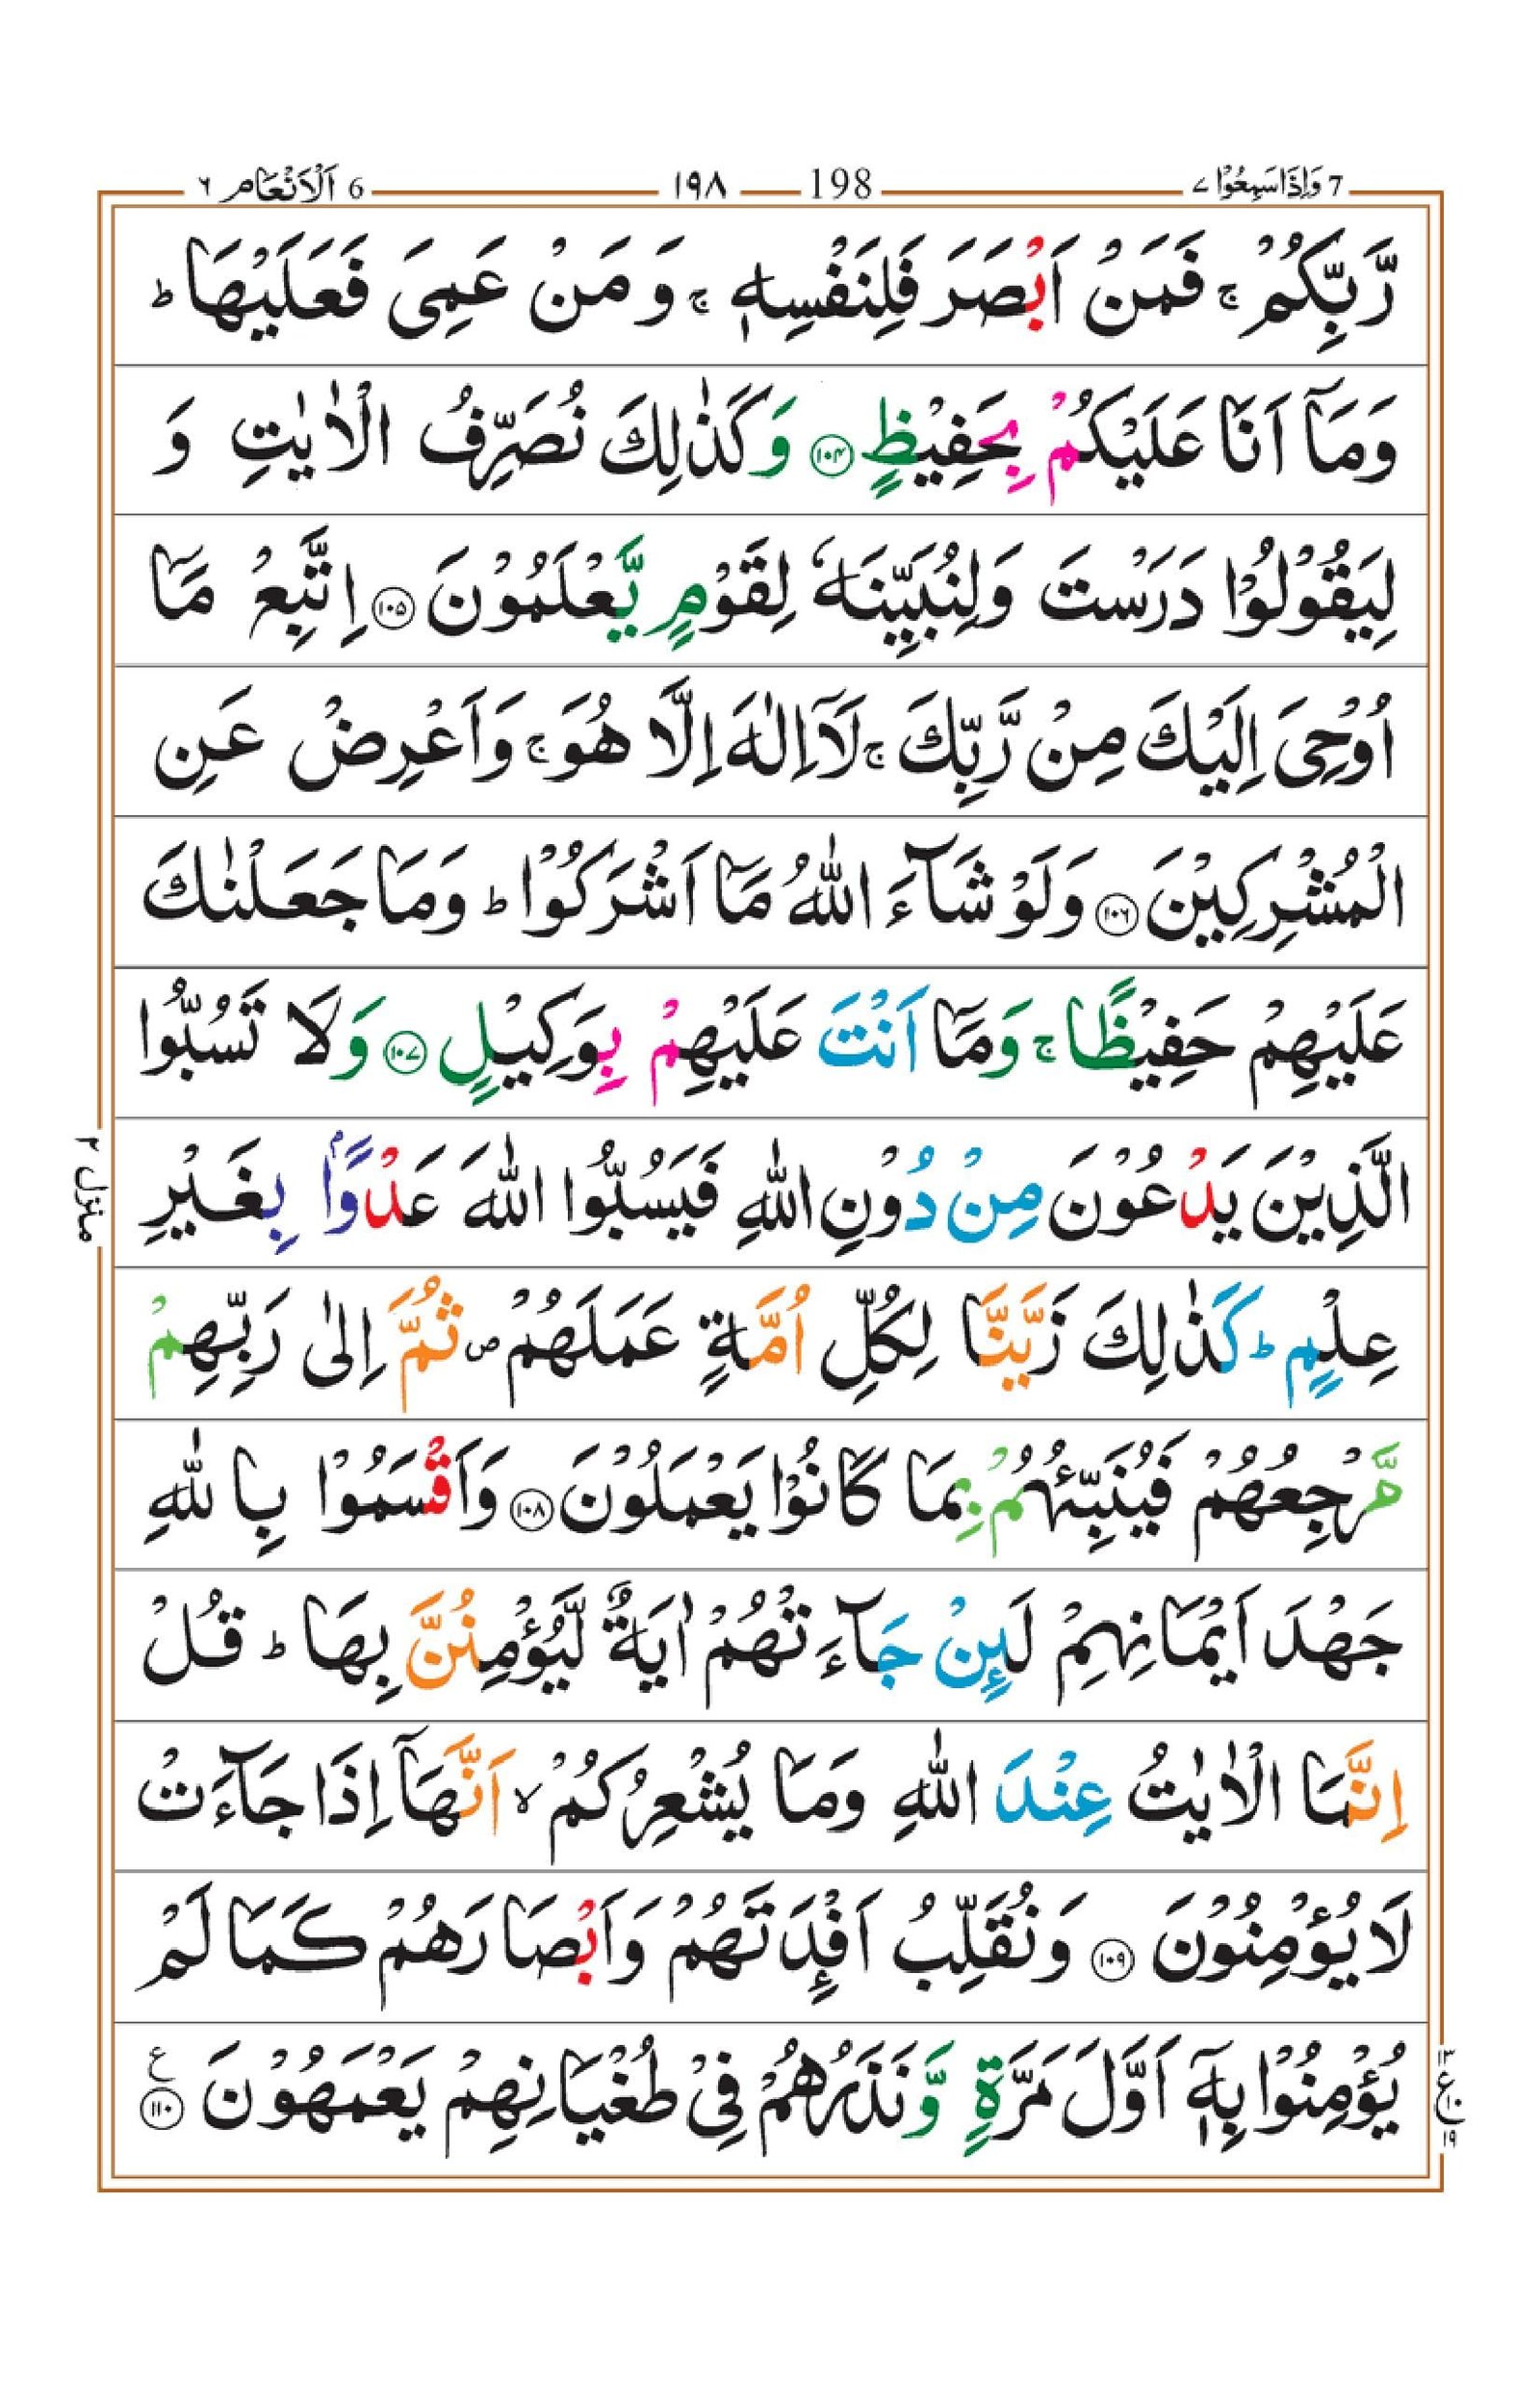 7 وَاِذَا سَمِعُوْا ٧ 198 ١٩٨ 6 اَلْاَنْعَام ٦
رَّبِّكُمْ ۚ فَمَنْ اَبْصَرَ فَلِنَفْسِهٖ ۚ وَ مَنْ عَمِیَ فَعَلَیْهَا ؕ
وَمَاۤ اَنَا عَلَیْكُمْ بِحَفِیْظٍ ﴿۱۰۴﴾ وَكَذٰلِكَ نُصَرِّفُ الْاٰیٰتِ وَ
لِیَقُوْلُوْا دَرَسْتَ وَلِنُبَیِّنَهٗ لِقَوْمٍ یَّعْلَمُوْنَ ﴿۱۰۵﴾ اِتَّبِعْ مَاۤ
اُوْحِیَ اِلَیْكَ مِنْ رَّبِّكَ ۚ لَاۤ اِلٰهَ اِلَّا هُوَ ۚ وَاَعْرِضْ عَنِ
الْمُشْرِكِیْنَ ﴿۱۰۶﴾ وَلَوْ شَآءَ اللّٰهُ مَاۤ اَشْرَكُوْا ؕ وَمَا جَعَلْنٰكَ
عَلَیْهِمْ حَفِیْظًا ۚ وَمَاۤ اَنْتَ عَلَیْهِمْ بِوَكِیْلٍ ﴿۱۰۷﴾ وَلَا تَسُبُّوا
الَّذِیْنَ یَدْعُوْنَ مِنْ دُوْنِ اللّٰهِ فَیَسُبُّوا اللّٰهَ عَدْوًۢا بِغَیْرِ
عِلْمٍ ؕ كَذٰلِكَ زَیَّنَّا لِكُلِّ اُمَّةٍ عَمَلَهُمْ ۪ ثُمَّ اِلٰی رَبِّهِمْ
مَّرْجِعُهُمْ فَیُنَبِّئُهُمْ بِمَا كَانُوْا یَعْمَلُوْنَ ﴿۱۰۸﴾ وَاَقْسَمُوْا بِاللّٰهِ
جَهْدَ اَیْمَانِهِمْ لَىِٕنْ جَآءَتْهُمْ اٰیَةٌ لَّیُؤْمِنُنَّ بِهَا ؕ قُلْ
اِنَّمَا الْاٰیٰتُ عِنْدَ اللّٰهِ وَمَا یُشْعِرُكُمْ ۙ اَنَّهَاۤ اِذَا جَآءَتْ
لَا یُؤْمِنُوْنَ ﴿۱۰۹﴾ وَنُقَلِّبُ اَفْـِٕدَتَهُمْ وَاَبْصَارَهُمْ كَمَا لَمْ
یُؤْمِنُوْا بِهٖۤ اَوَّلَ مَرَّةٍ وَّنَذَرُهُمْ فِیْ طُغْیَانِهِمْ یَعْمَهُوْنَ ﴿۱۱۰﴾ ع
منزل ۲
۱۳ ع ۱۰ ۱۹